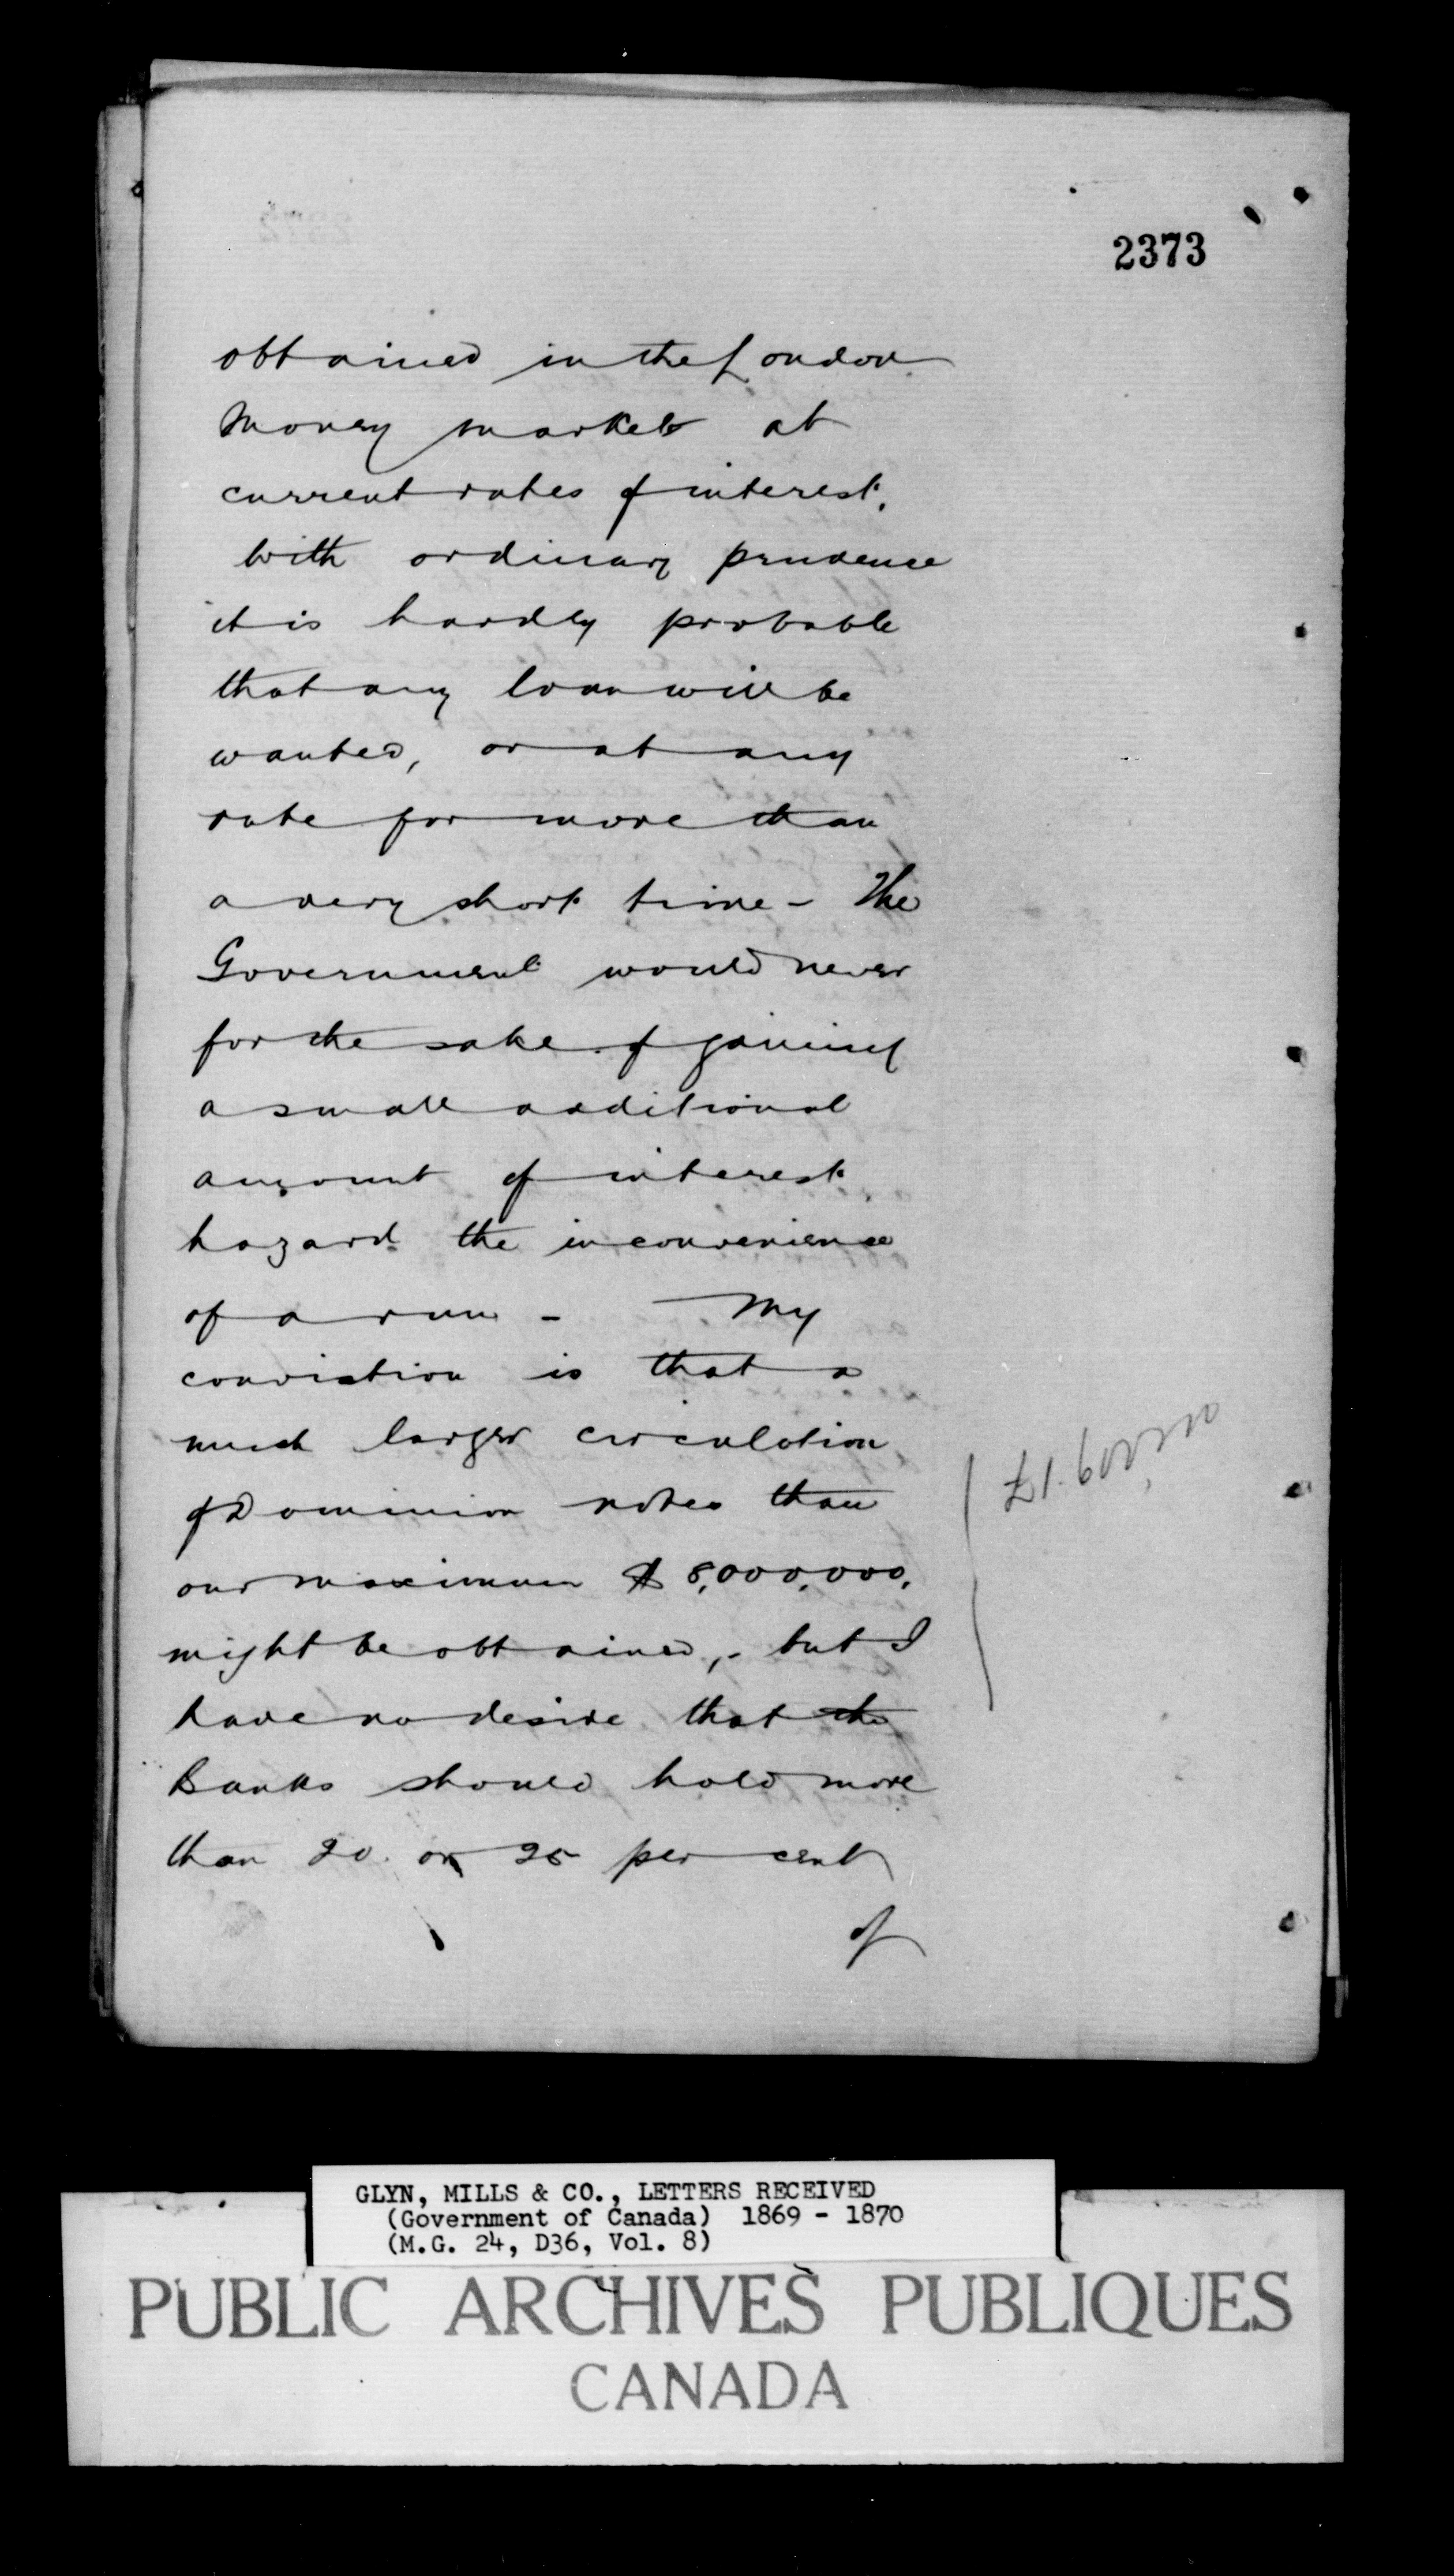 2373
obtained in the London
Money market at
current rates of interest.
With ordinary prudence
it is hardly probable
that any loan will be
wanted, or at any
rate for more than
a very short time - The
Government would never
for the sake of gaining
a small additional
amount of interest
hazard the inconvenience
of a run - My
conviction is that a
much larger circulation
of Dominion notes than
our maximum $8,000,000,
might be obtained, - but I
have no desire that the
Banks should hold more
than 20 or 25 per cent
of
GLYN, MILLS & CO., LETTERS RECEIVED
(Government of Canada) 1869 - 1870
(M.G. 24, D36, Vol. 8)
PUBLIC ARCHIVES PUBLIQUES
CANADA